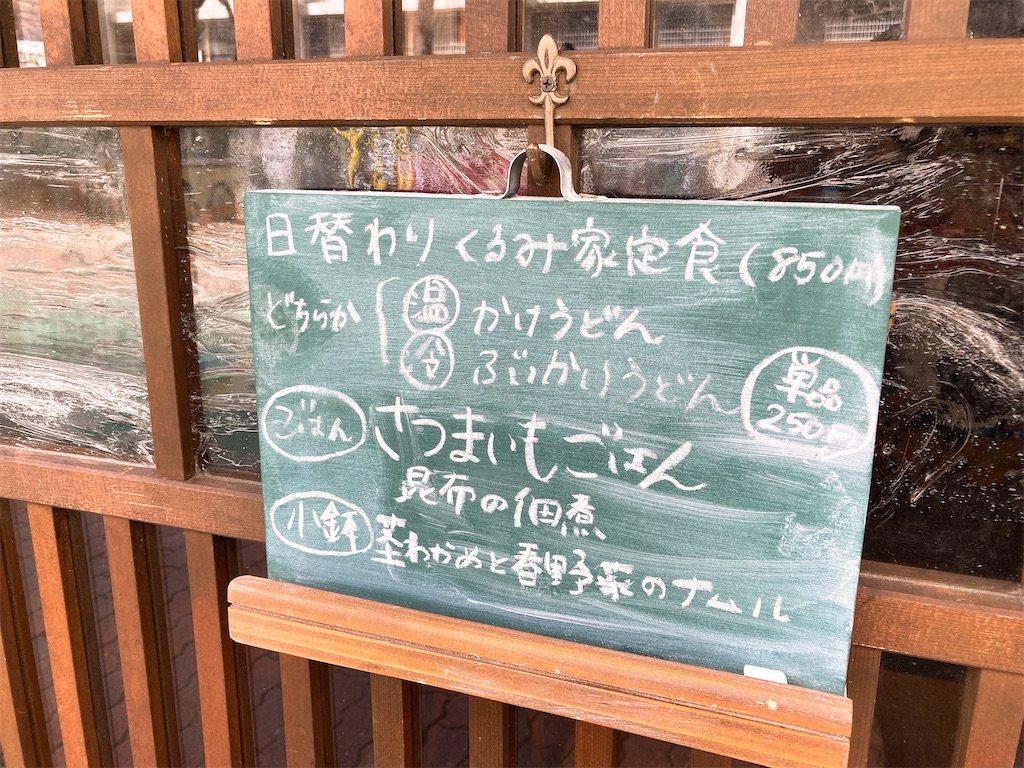 日替わりくるみ家定食(850円)
どちらか
温 かけうどん
冷 ぶっかけうどん
単品
250円
ごはん さつまいもごはん
昆布の佃煮
小鉢 茎わかめと春野菜のナムル